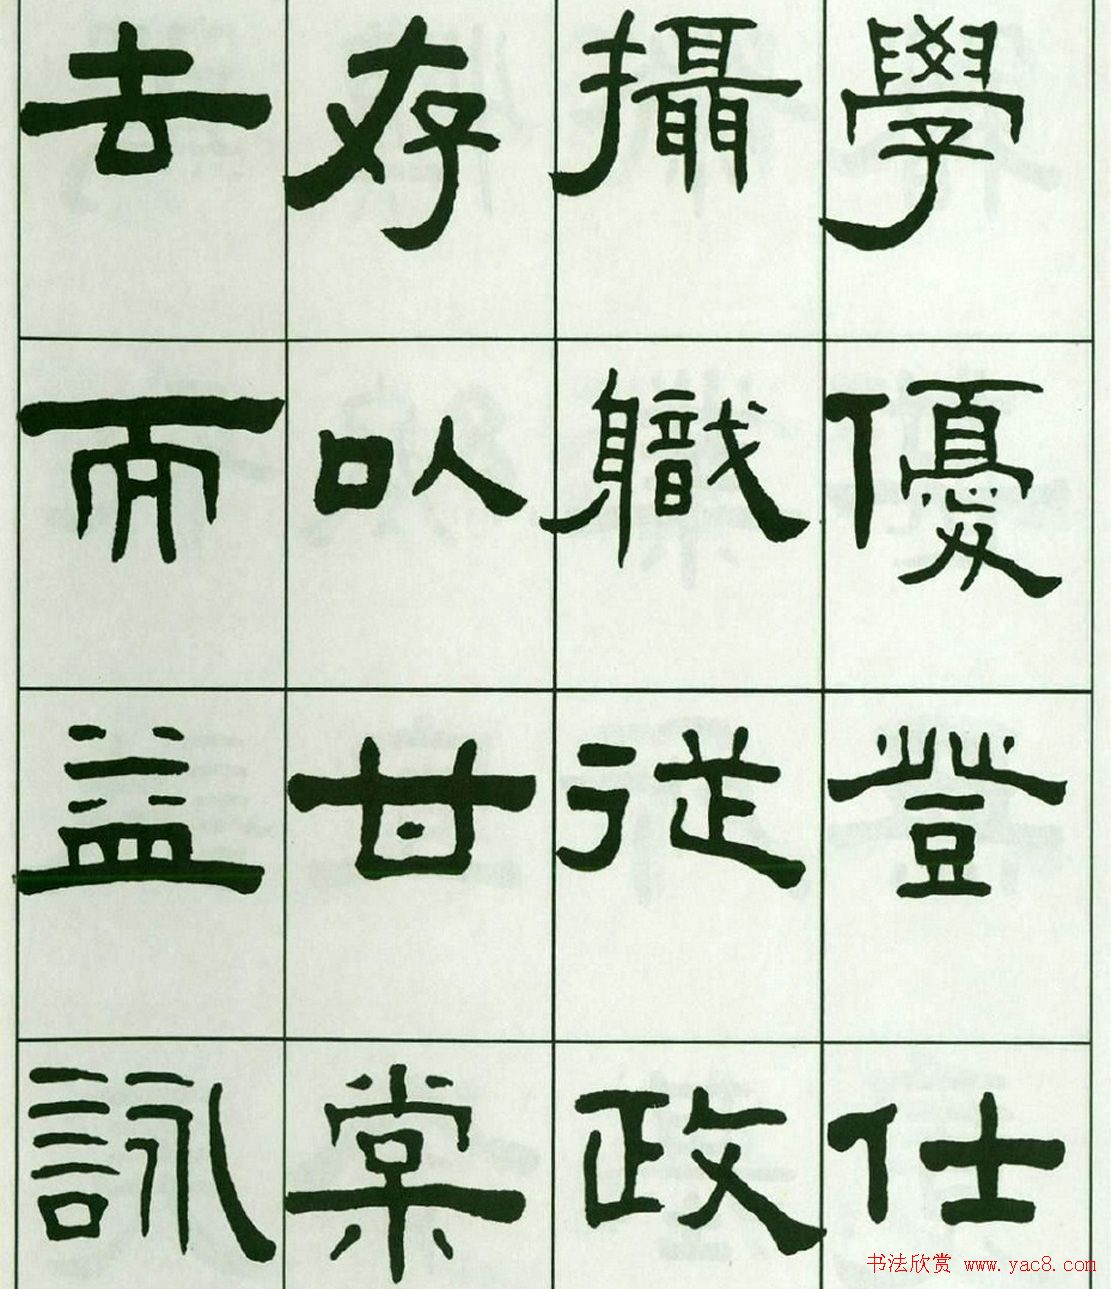 學優登仕
攝職從政
存以甘棠
去而益詠
书法欣赏 www.yac8.com